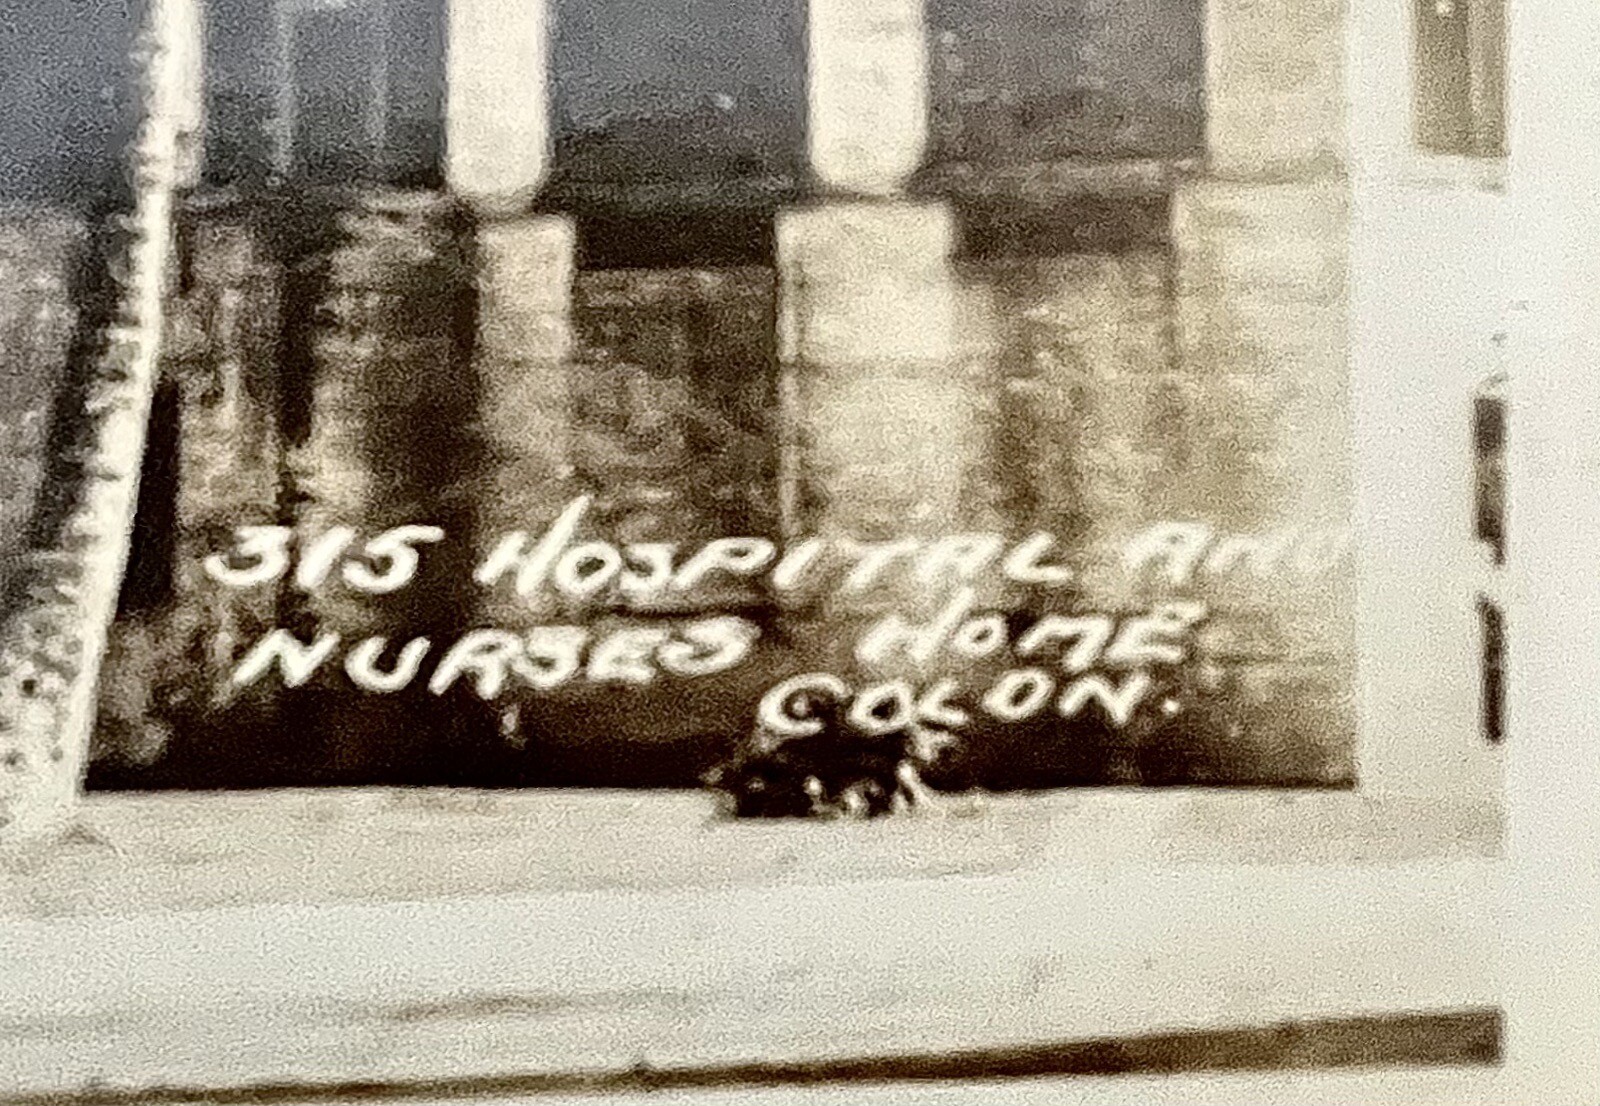 315 HOSPITAL AND
NURSES HOME
COLON.